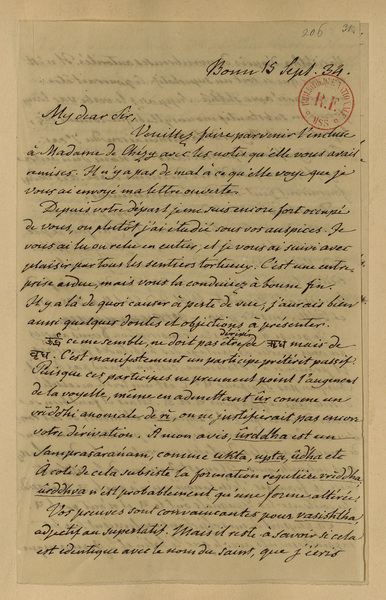 206
Bonn 15 Sept. 34.
BIBLIOTHÈQUE NATIONALE
R.F.
MSS
My dear Sir,
Veuillez faire parvenir l'incluse
à Madame de Chézy avec les notes qu'elle vous avait
remises. Il n'y a pas de mal à ce qu'elle voye que je
vous ai envoyé ma lettre ouverte.
Depuis votre départ je me suis encore fort occupé
de vous, ou plutôt j'ai étudié sous vos auspices. Je
vous ai lu ou relu en entier, et je vous ai suivi avec
plaisir par tous les sentiers tortueux. C'est une entre-
prise ardue, mais vous la conduirez à bonne fin.
Il y a là de quoi causer à perte de vue, j'aurais bien
aussi quelques doutes et objections à présenter.
ce me semble, ne doit pas être dérivé de mais de
C'est manifestement un participe prétérit passif.
Puisque ces participes ne prennent point l'augment
de la voyelle, même en admettant ûr comme un
vriddhi anomale de ri, on ne justifierait pas encor
votre dérivation. A mon avis, ûrddha est un
Samprasâranam, comme ukta, upta, ûdha etc
A coté de cela subsiste la formation régulière vriddha,
ûrddhva n'est probablement qu'une forme altérée.
Vos preuves sont convaincantes pour vasishtha,
adjectif au superlatif. Mais il reste à savoir si cela
est identique avec le nom du saint, que j'écris